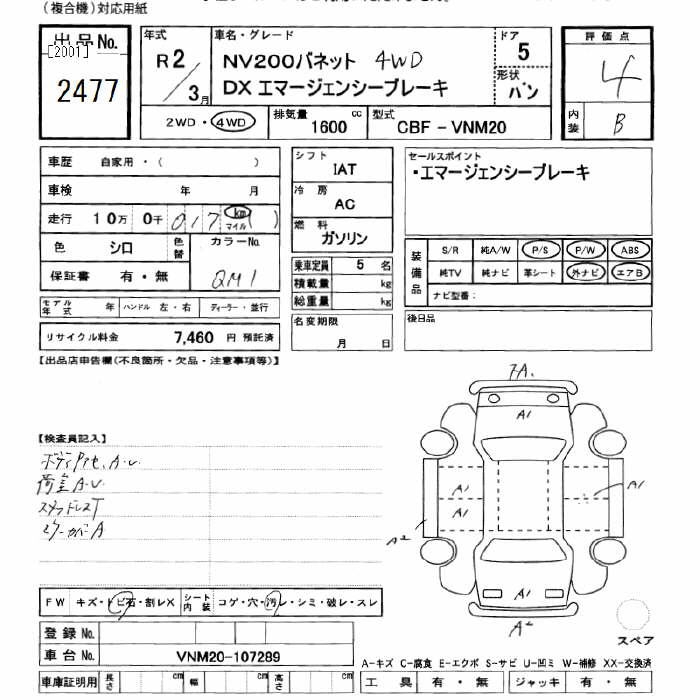 (複合機)対応用紙
出品No.
[2001]
2477
年式
R2/3月
車名・グレード
NV200バネット 4WD
DX エマージェンシーブレーキ
ドア
5
形状
バン
評価点
4
内装
B
2WD・4WD
排気量 1600 cc
型式 CBF-VNM20
車歴 自家用・( )
車検 年 月
走行 10万 0千 017 km マイル )
色 シロ 色替 カラーNo. QM1
保証書 有・無
モデル年式 年 ハンドル 左・右 ディーラー・並行
リサイクル料金 7,460 円 預託済
シフト
IAT
冷房
AC
燃料
ガソリン
乗車定員 5 名
積載量 kg
総重量 kg
名変期限
月 日
セールスポイント
・エマージェンシーブレーキ
装備品
S/R 純A/W P/S P/W ABS
純TV 純ナビ 革シート 外ナビ エアB
ナビ型番:
後日品
【出品店申告欄(不良箇所・欠品・注意事項等)】
【検査員記入】
A.U
荷室A.U
スタッドレスT
A
A1
A1
A1
A1
A2
A1
A2
FW キズ・トビ石・割レX シート内装 コゲ・穴・汚レ・シミ・破レ・スレ
登録No.
車台No. VNM20-107289
車庫証明用 長さ cm 幅 cm 高さ cm
スペア
A-キズ C-腐食 E-エクボ S-サビ U-凹ミ W-補修 XX-交換済
工具 有・無 ジャッキ 有・無